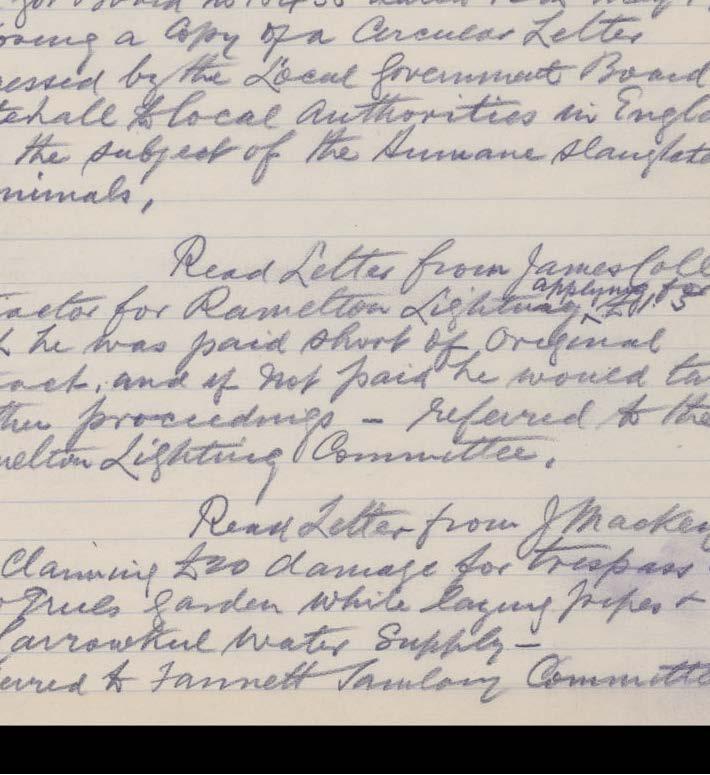 a Copy of a Circular Letter
essed by the Local Government Board
tehall to local Authorities in Engla
the subject of the Humane Slaughte
nimals,
Read Letter from James Coll
applying for
actor for Ramelton Lighting £11.5
h he was paid short of Original
act, and if not paid he would ta
ther proceedings – referred to the
melton Lighting Committee.
Read Letter from J Mackey
Claiming £20 damage for trespass
garden while laying pipes
Carrowkeel Water Supply –
erred to Fannett Sanitary Committe